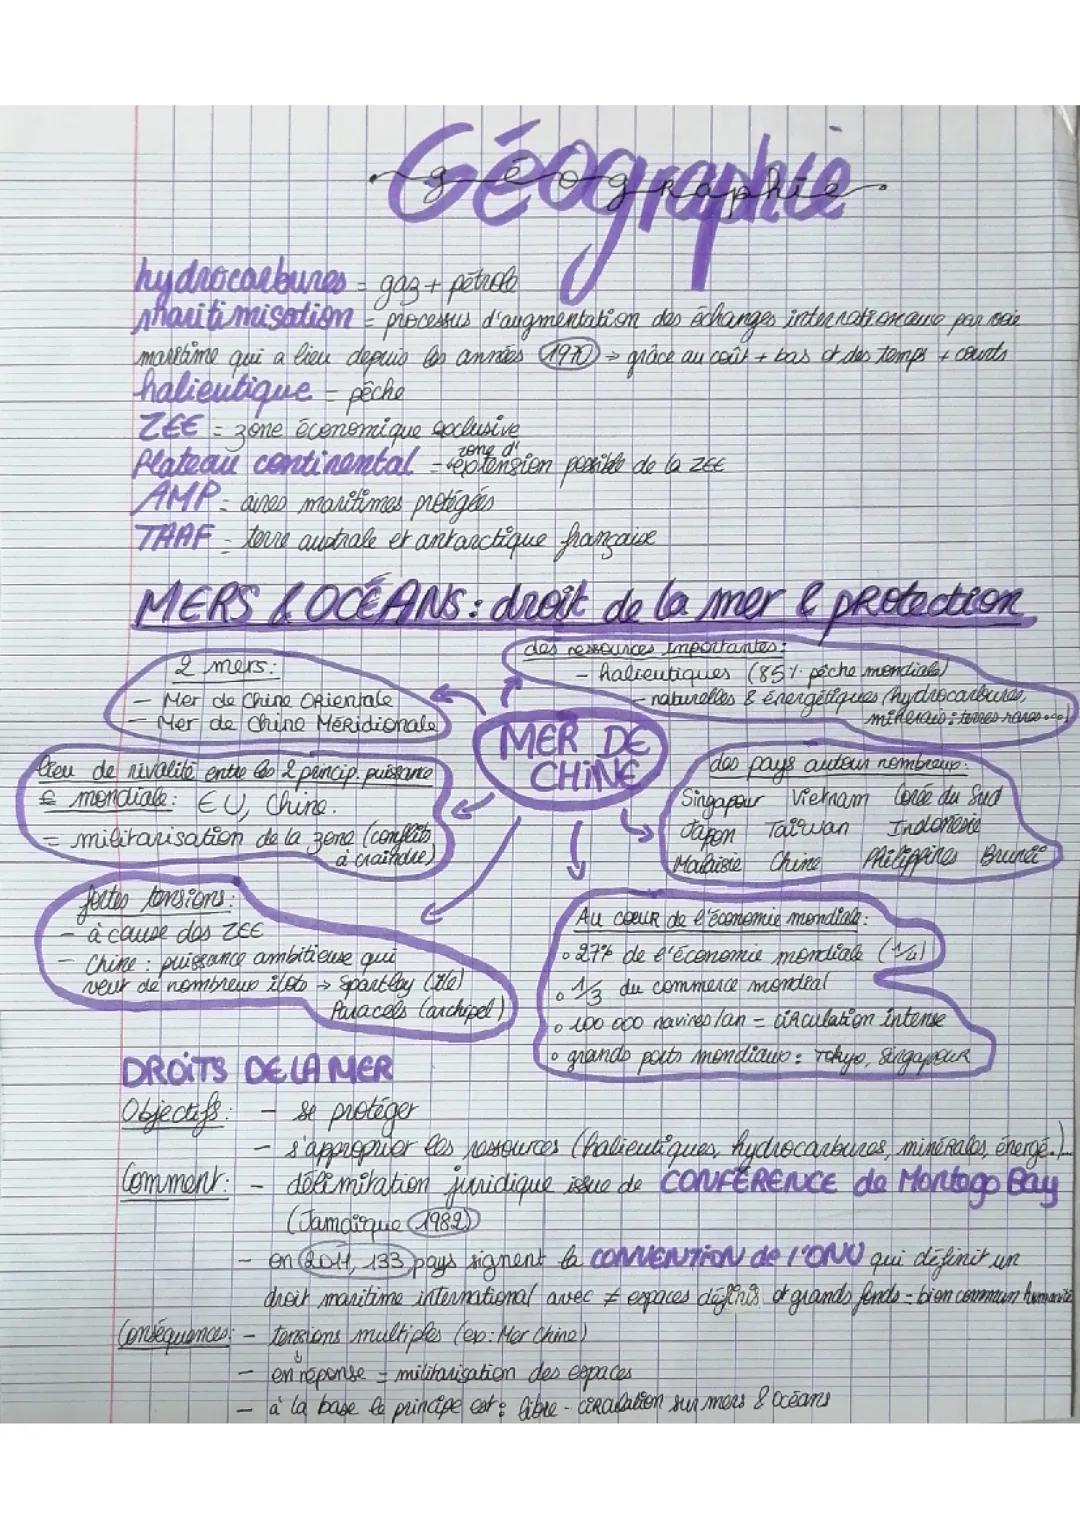 Géographie
géographie
hydrocarbures = gaz + pétrole
maritimisation = processus d'augmentation des échanges internationaux par voie
maritime qui a lieu depuis les années 1970 → grâce au coût + bas et des temps + courts
halieutique = pêche
ZEE = zone économique exclusive
Plateau continental = zone d'extension possible de la ZEE
AMP = aires maritimes protégées
TAAF = terre australe et antarctique française
MERS & OCÉANS : droit de la mer & protection
des ressources importantes :
- halieutiques (85% pêche mondiale)
- naturelles & énergétiques (hydrocarbures,
minerais : terres rares...)
2 mers :
- Mer de Chine Orientale
- Mer de Chine Méridionale
MER DE
CHINE
lieu de rivalité entre les 2 princip. puissance
€ mondiale : EU, Chine.
= militarisation de la zone (conflits
à craindre)
des pays autour nombreux :
Singapour Vietnam Corée du Sud
Japon Taïwan Indonésie
Malaisie Chine Philippines Brunéi
fortes tensions :
- à cause des ZEE
- Chine : puissance ambitieuse qui
veut de nombreux îlots → Spartley (île)
Paracels (archipel)
Au cœur de l'économie mondiale :
° 27% de l'économie mondiale (1/4)
° 1/3 du commerce mondial
° 100 000 navires/an = circulation intense
° grands ports mondiaux : Tokyo, Singapour
DROITS DE LA MER
Objectifs : - se protéger
- s'approprier les ressources (halieutiques, hydrocarbures, minérales, énergé.)...
Comment : - délimitation juridique issue de CONFÉRENCE de Montego Bay
(Jamaïque 1982)
- en 2011, 133 pays signent la CONVENTION de l'ONU qui définit un
droit maritime international avec ≠ espaces définis et grands fonds = bien commun humanité
Conséquences : - tensions multiples (ex : Mer Chine)
↓
- en réponse = militarisation des espaces
- à la base le principe est : libre-circulation sur mers & océans